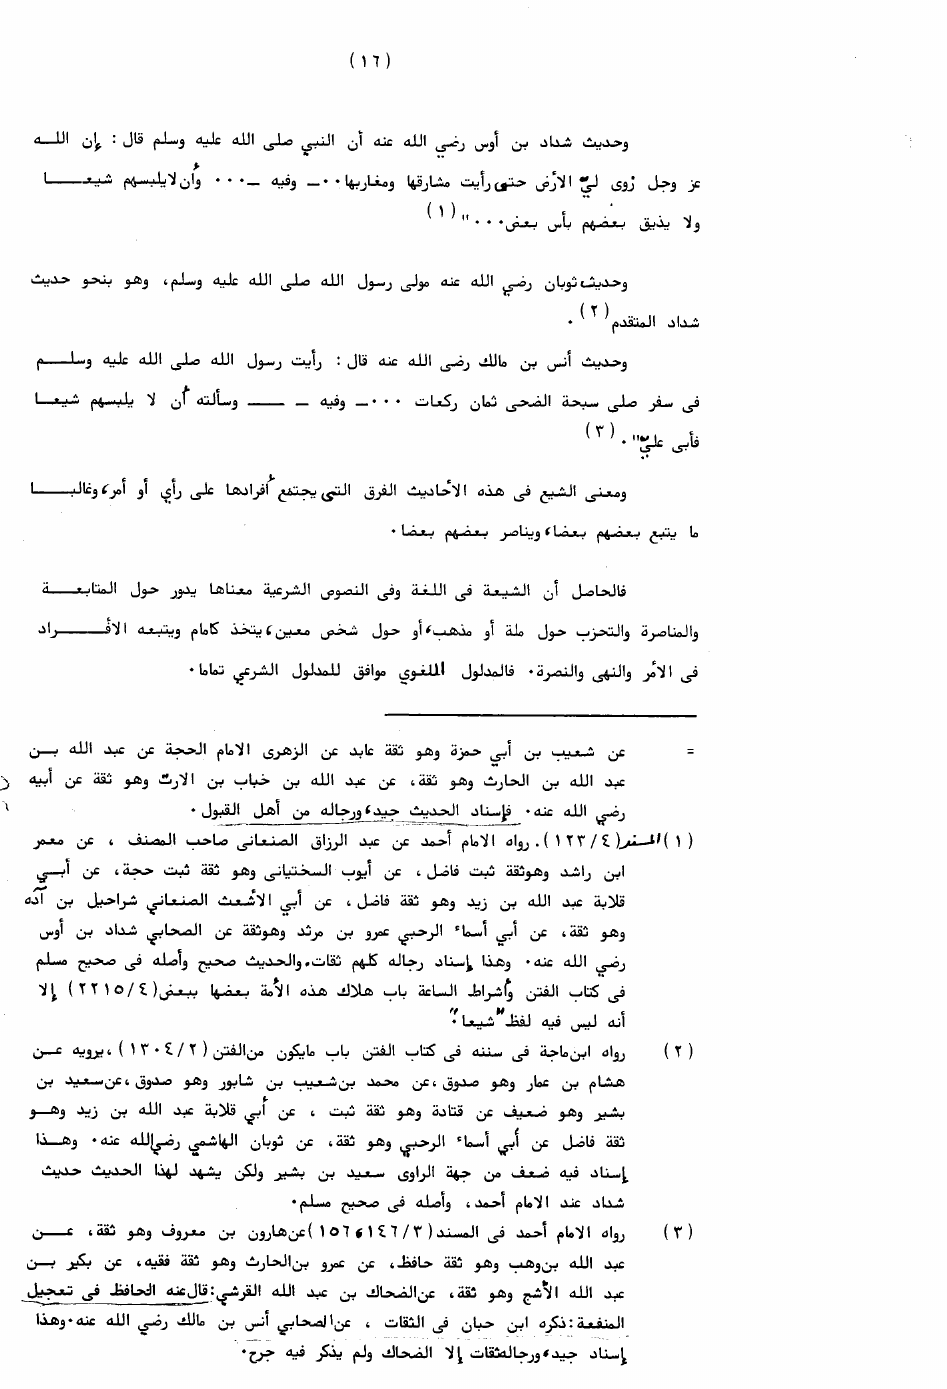 (١٦)
وحديث شداد بن أوس رضي الله عنه أن النبي صلى الله عليه وسلم قال : إن اللــه
عز وجل زوى لي الأرض حتى رأيت مشارقها ومغاربها ٠٠ـ وفيه ـ٠٠٠ وأن لايلبسهم شيعــــا
ولا يذيق بعضهم بأس بعض٠٠٠"(١)
وحديث ثوبان رضي الله عنه مولى رسول الله صلى الله عليه وسلم، وهو بنحو حديث
شداد المتقدم(٢)٠
وحديث أنس بن مالك رضى الله عنه قال : رأيت رسول الله صلى الله عليه وسلــم
فى سفر صلى سبحة الضحى ثمان ركعات ٠٠٠ـ وفيه ـ ــــ وسألته أن لا يلبسهم شيعــا
فأبى علي"٠(٣)
ومعنى الشيع فى هذه الأحاديث الفرق التي يجتمع أفرادها على رأي أو أمر، وغالبــا
ما يتبع بعضهم بعضا، ويناصر بعضهم بعضا٠
فالحاصل أن الشيعة فى اللغة وفى النصوص الشرعية معناها يدور حول المتابعــــة
والمناصرة والتحزب حول ملة أو مذهب، أو حول شخص معين، يتخذ كامام ويتبعه الأفــــراد
فى الأمر والنهى والنصرة٠ فالمدلول اللغوي موافق للمدلول الشرعي تماما٠
= عن شعيب بن أبي حمزة وهو ثقة عابد عن الزهرى الامام الحجة عن عبد الله بــن
عبد الله بن الحارث وهو ثقة، عن عبد الله بن خباب بن الارت وهو ثقة عن أبيه
رضي الله عنه٠ فإسناد الحديث جيد، ورجاله من أهل القبول٠
(١) المسند(١٢٣/٤)٠ رواه الامام أحمد عن عبد الرزاق الصنعانى صاحب المصنف ، عن معمر
ابن راشد وهوثقة ثبت فاضل، عن أيوب السختيانى وهو ثقة ثبت حجة، عن أبــي
قلابة عبد الله بن زيد وهو ثقة فاضل، عن أبي الأشعث الصنعاني شراحيل بن آده
وهو ثقة، عن أبي أسماء الرحبي عمرو بن مرثد وهوثقة عن الصحابي شداد بن أوس
رضي الله عنه٠ وهذا إسناد رجاله كلهم ثقات،والحديث صحيح وأصله فى صحيح مسلم
فى كتاب الفتن وأشراط الساعة باب هلاك هذه الأمة بعضها ببعض(٢٢١٥/٤) إلا
أنه ليس فيه لفظ "شيعا"٠
(٢) رواه ابن ماجة فى سننه فى كتاب الفتن باب مايكون من الفتن (١٣٠٤/٢) ،يرويه عــن
هشام بن عمار وهو صدوق ،عن محمد بن شعيب بن شابور وهو صدوق ،عن سعيد بن
بشير وهو ضعيف عن قتادة وهو ثقة ثبت ، عن أبي قلابة عبد الله بن زيد وهــو
ثقة فاضل عن أبي أسماء الرحبي وهو ثقة، عن ثوبان الهاشمي رضي الله عنه٠ وهــذا
إسناد فيه ضعف من جهة الراوى سعيد بن بشير ولكن يشهد لهذا الحديث حديث
شداد عند الامام أحمد، وأصله فى صحيح مسلم٠
(٣) رواه الامام أحمد فى المسند(١٤٦/٣، ١٥٦)عن هارون بن معروف وهو ثقة، عــن
عبد الله بن وهب وهو ثقة حافظ، عن عمرو بن الحارث وهو ثقة فقيه، عن بكير بــن
عبد الله الأشج وهو ثقة، عن الضحاك بن عبد الله القرشي:قال عنه الحافظ فى تعجيل
المنفعة:ذكره ابن حبان فى الثقات ، عن الصحابي أنس بن مالك رضي الله عنه٠وهذا
إسناد جيد، ورجاله ثقات إلا الضحاك ولم يذكر فيه جرح٠